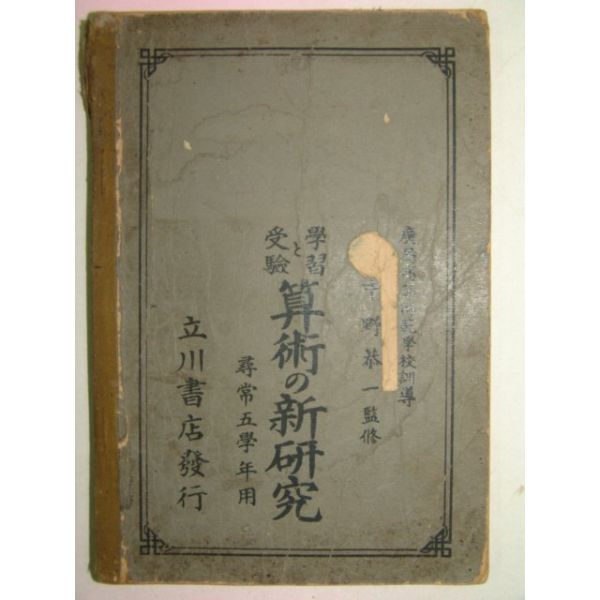 師範學校訓導
野恭一監修
學習と受驗
算術の新研究
尋常五學年用
立川書店發行